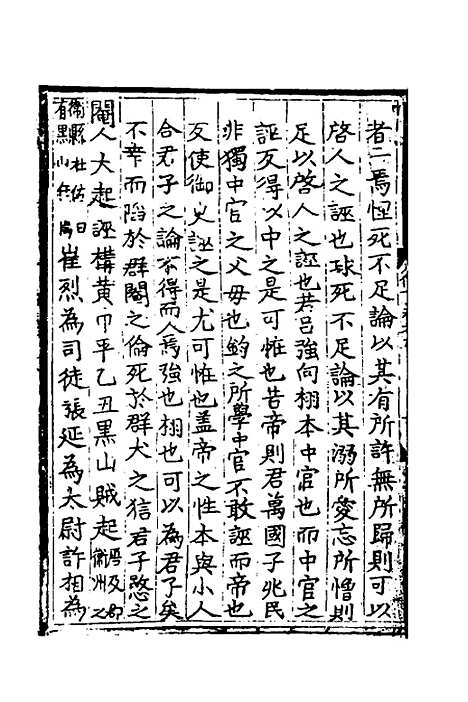 者二焉恇死不足論以其有所許無所歸則可以
啓人之誣也球死不足論以其溺所愛忘所憎則
足以啓人之誣也若呂強向栩本中官也而中官之
誣反得以中之是可恠也昔帝則君萬國子兆民
非獨中官之父毋也鈞之所學中官不敢誣而帝也
反使御史誣之是尤可恠也盖帝之性本與小人
合君子之論不得而人焉強也栩也可以為君子矣
不幸而陷於群閹之倫死於群犬之狺君子愍之
閹人大起誣構黄巾平乙丑黒山賊起
衛縣杜佑曰
有黒山
崔烈為司徒張延為太尉許相為